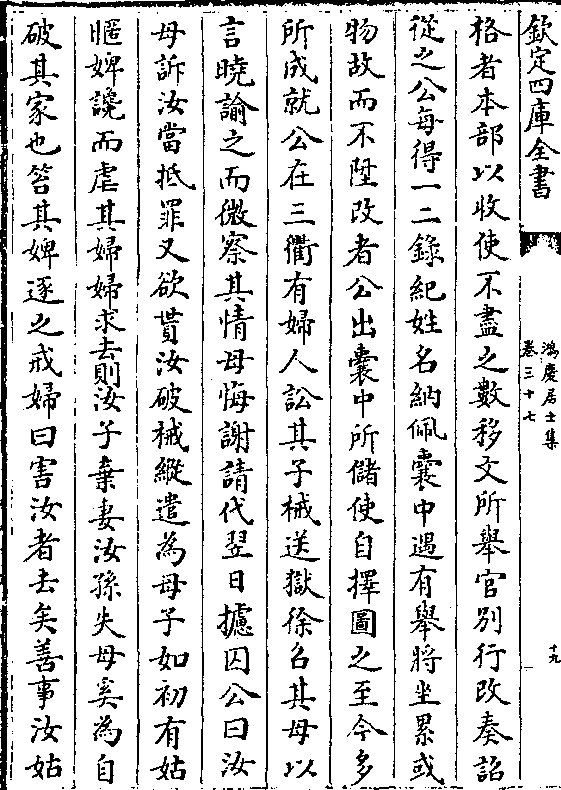 欽定四庫全書
鴻慶居士集
卷三十七
十九
格者本部以收使不盡之數移文所舉官别行改奏詔
從之公每得一二錄紀姓名納佩囊中遇有舉將坐累或
物故而不陞改者公出囊中所儲使自擇圖之至今多
所成就公在三衢有婦人訟其子械送獄徐召其母以
言曉諭之而微察其情母悔謝請代翌日攄囚公曰汝
母訴汝當抵罪又欲貰汝破械縱遣為母子如初有姑
暱婢讒而虐其婦婦求去則汝子棄妻汝孫失母奚為自
破其家也笞其婢逐之戒婦曰害汝者去矣善事汝姑